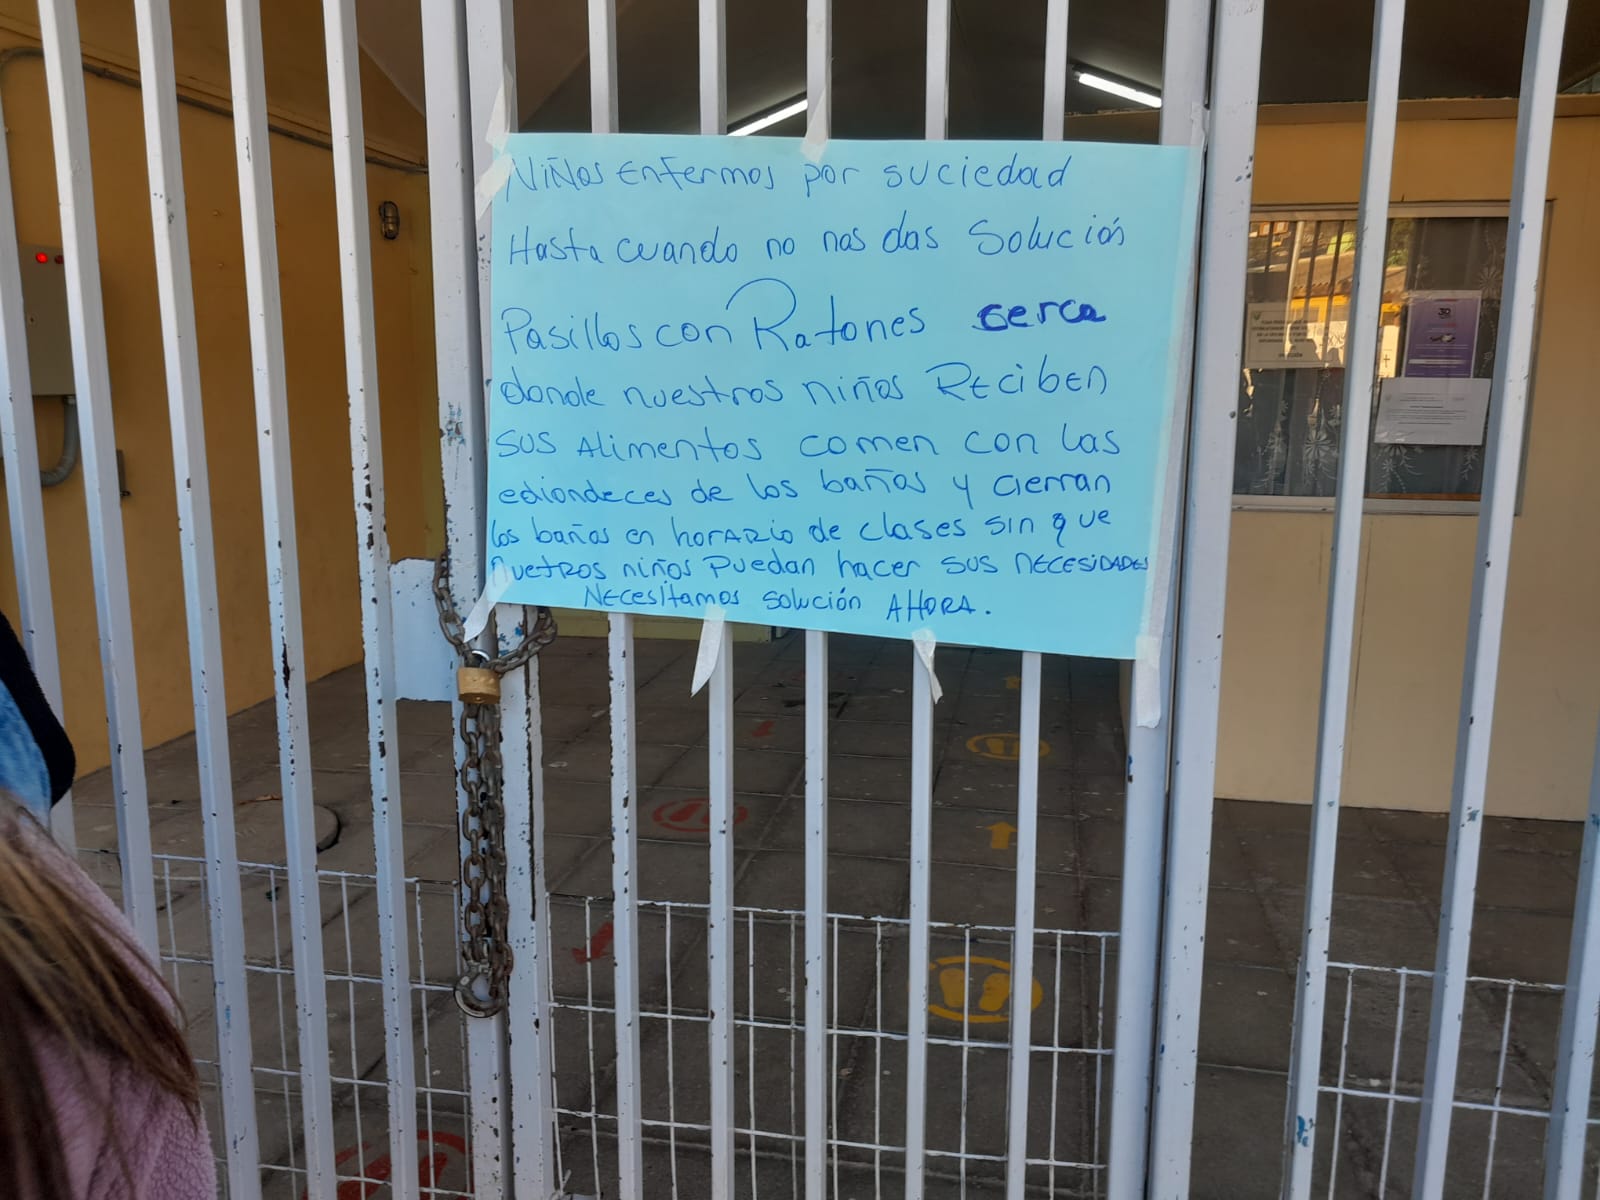 Niños Enfermos por suciedad
Hasta cuando no nos das Solución
Pasillos con Ratones cerca
donde nuestros niños Reciben
sus Alimentos comen con las
ediondeces de los baños y cierran
los baños en horario de clases sin que
nuetros niños puedan hacer sus necesidades
Necesitamos solución AHORA.
30